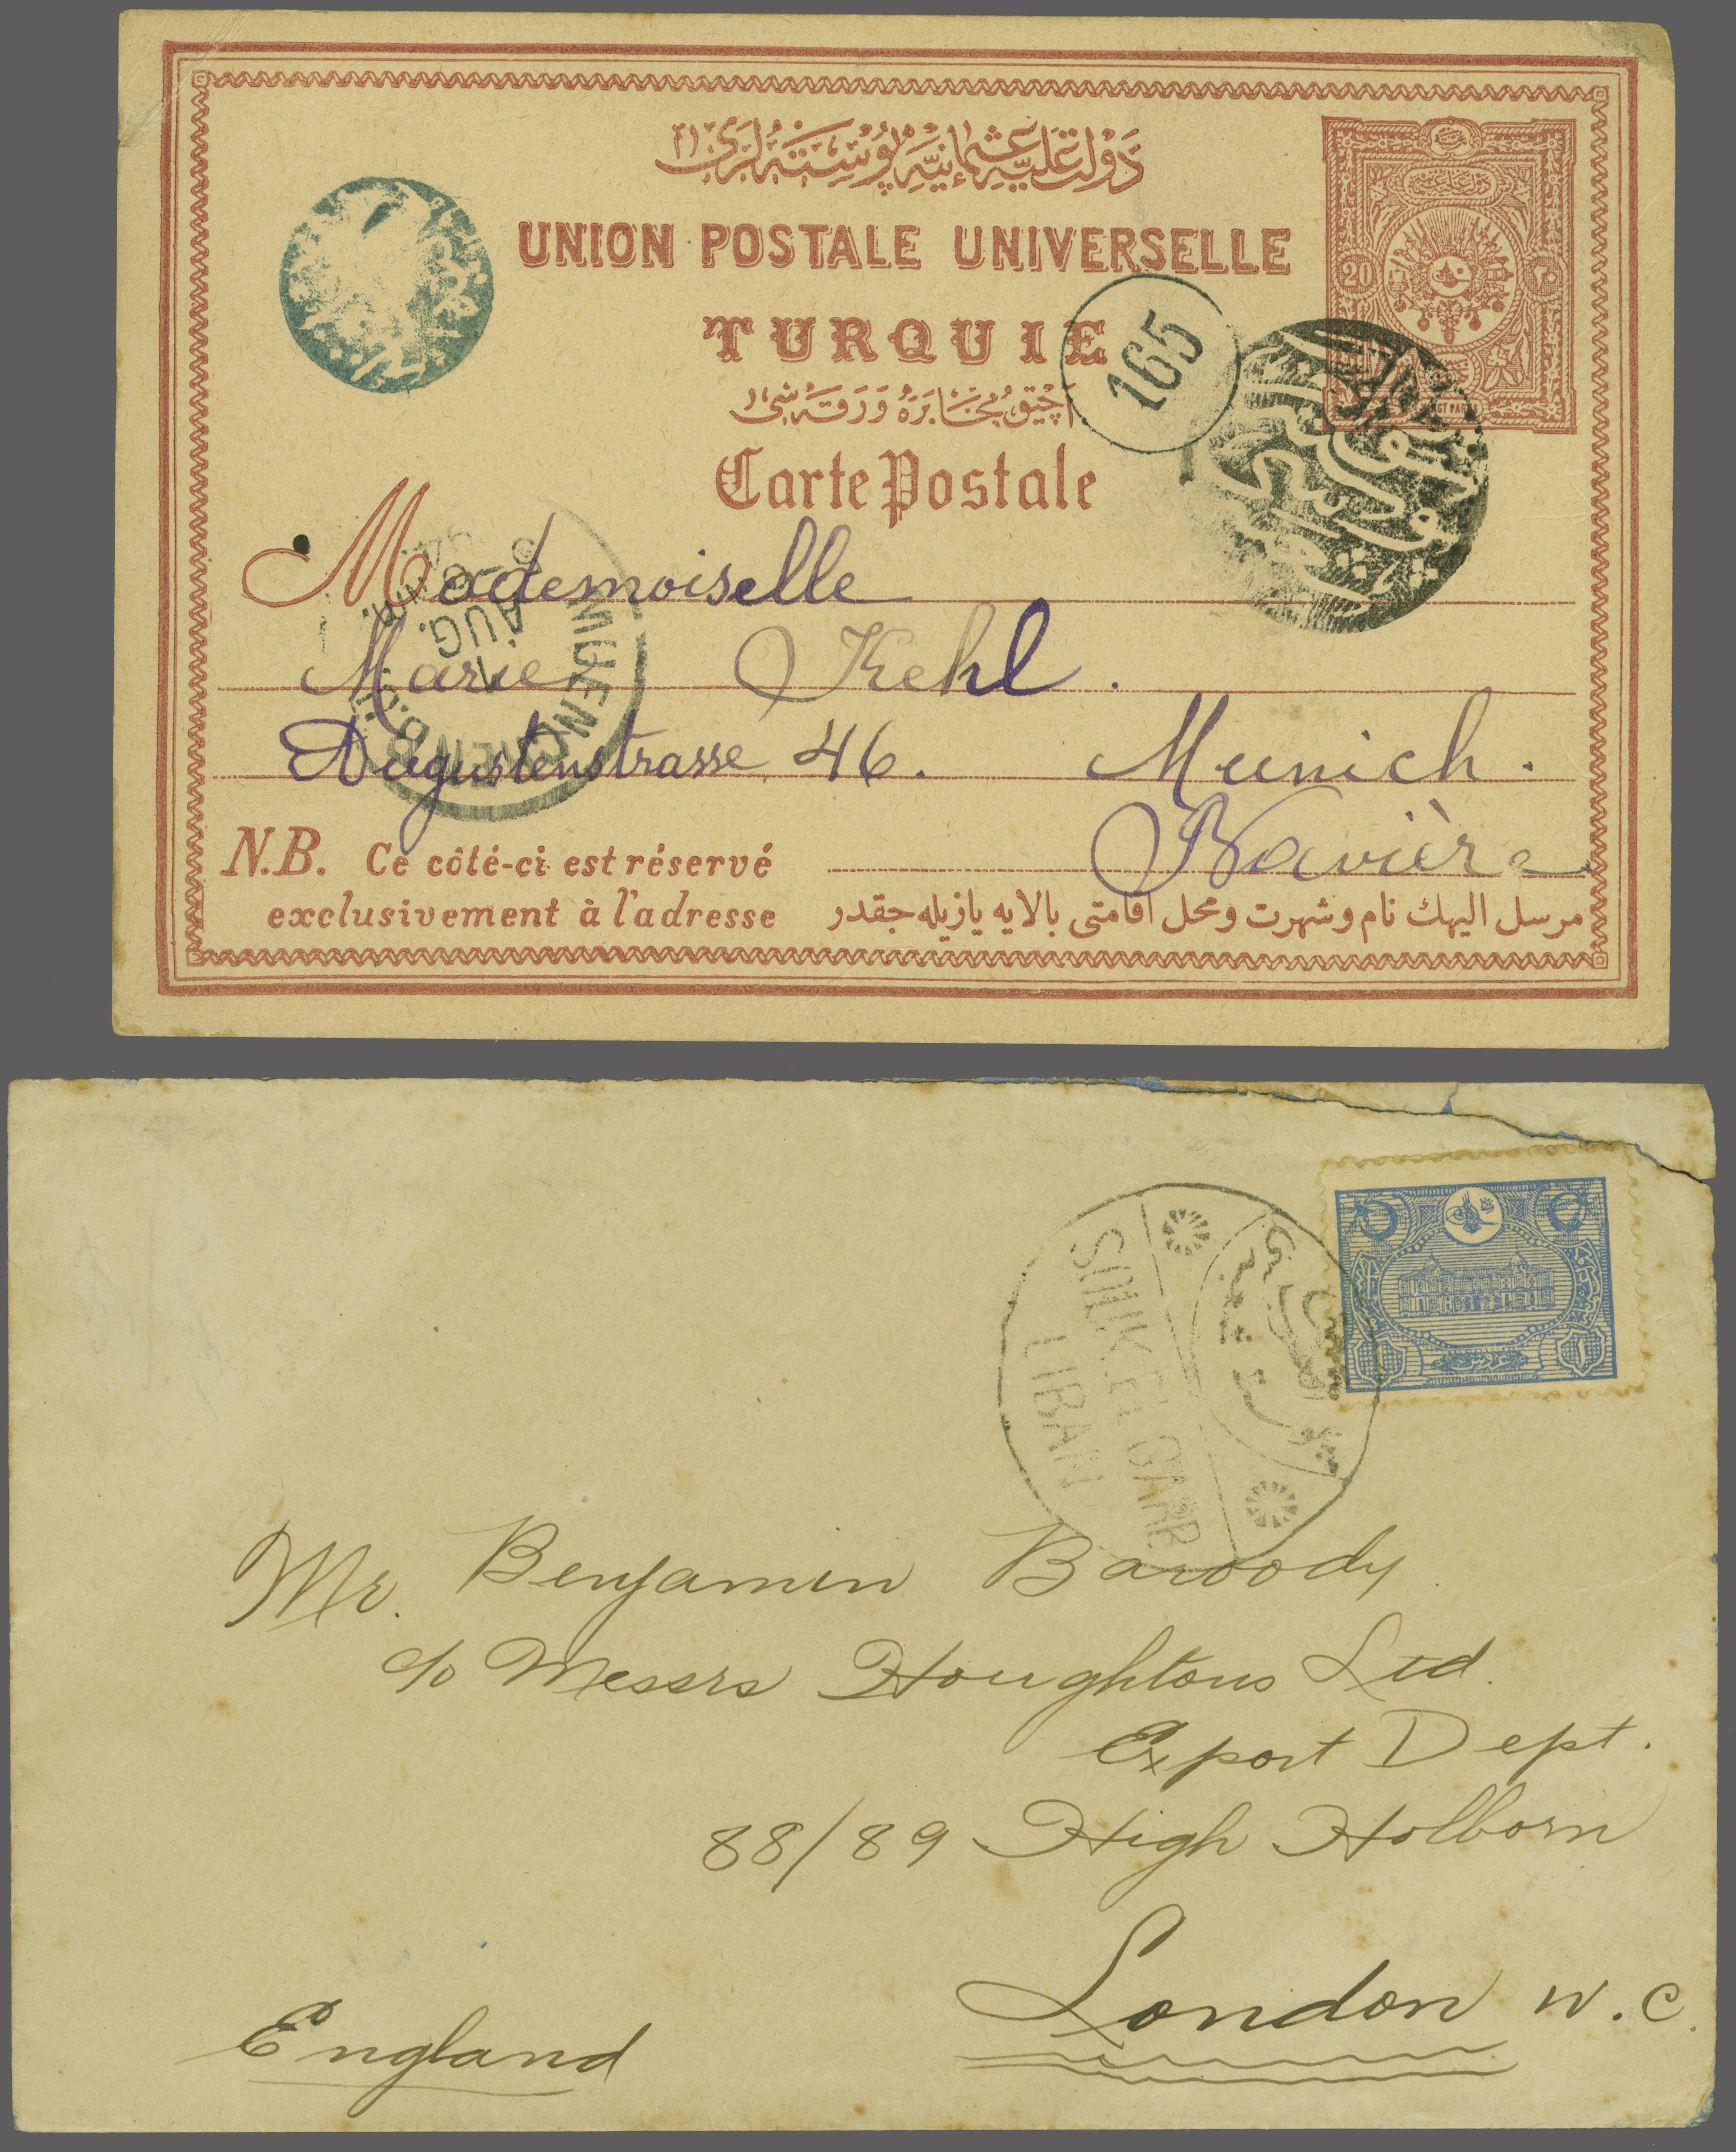 دولت علیهٔ عثمانیه پوسته لری
UNION POSTALE UNIVERSELLE
TURQUIE
20
٢٠
165
آچیق مخابره ورقه سی
Carte Postale
MUENCHEN
AUG.
Mademoiselle
Marie Kehl.
Augustenstrasse 46. Munich.
Bavière
N.B. Ce côté-ci est réservé
exclusivement à l'adresse
مرسل الیهك نام وشهرت ومحل اقامتی بالایه یازیله جقدر
غروش
١
LIBAN
Mr. Benjamin Baroody
c/o Messrs Houghtons Ltd.
Export Dept.
88/89 High Holborn
London W.C.
England